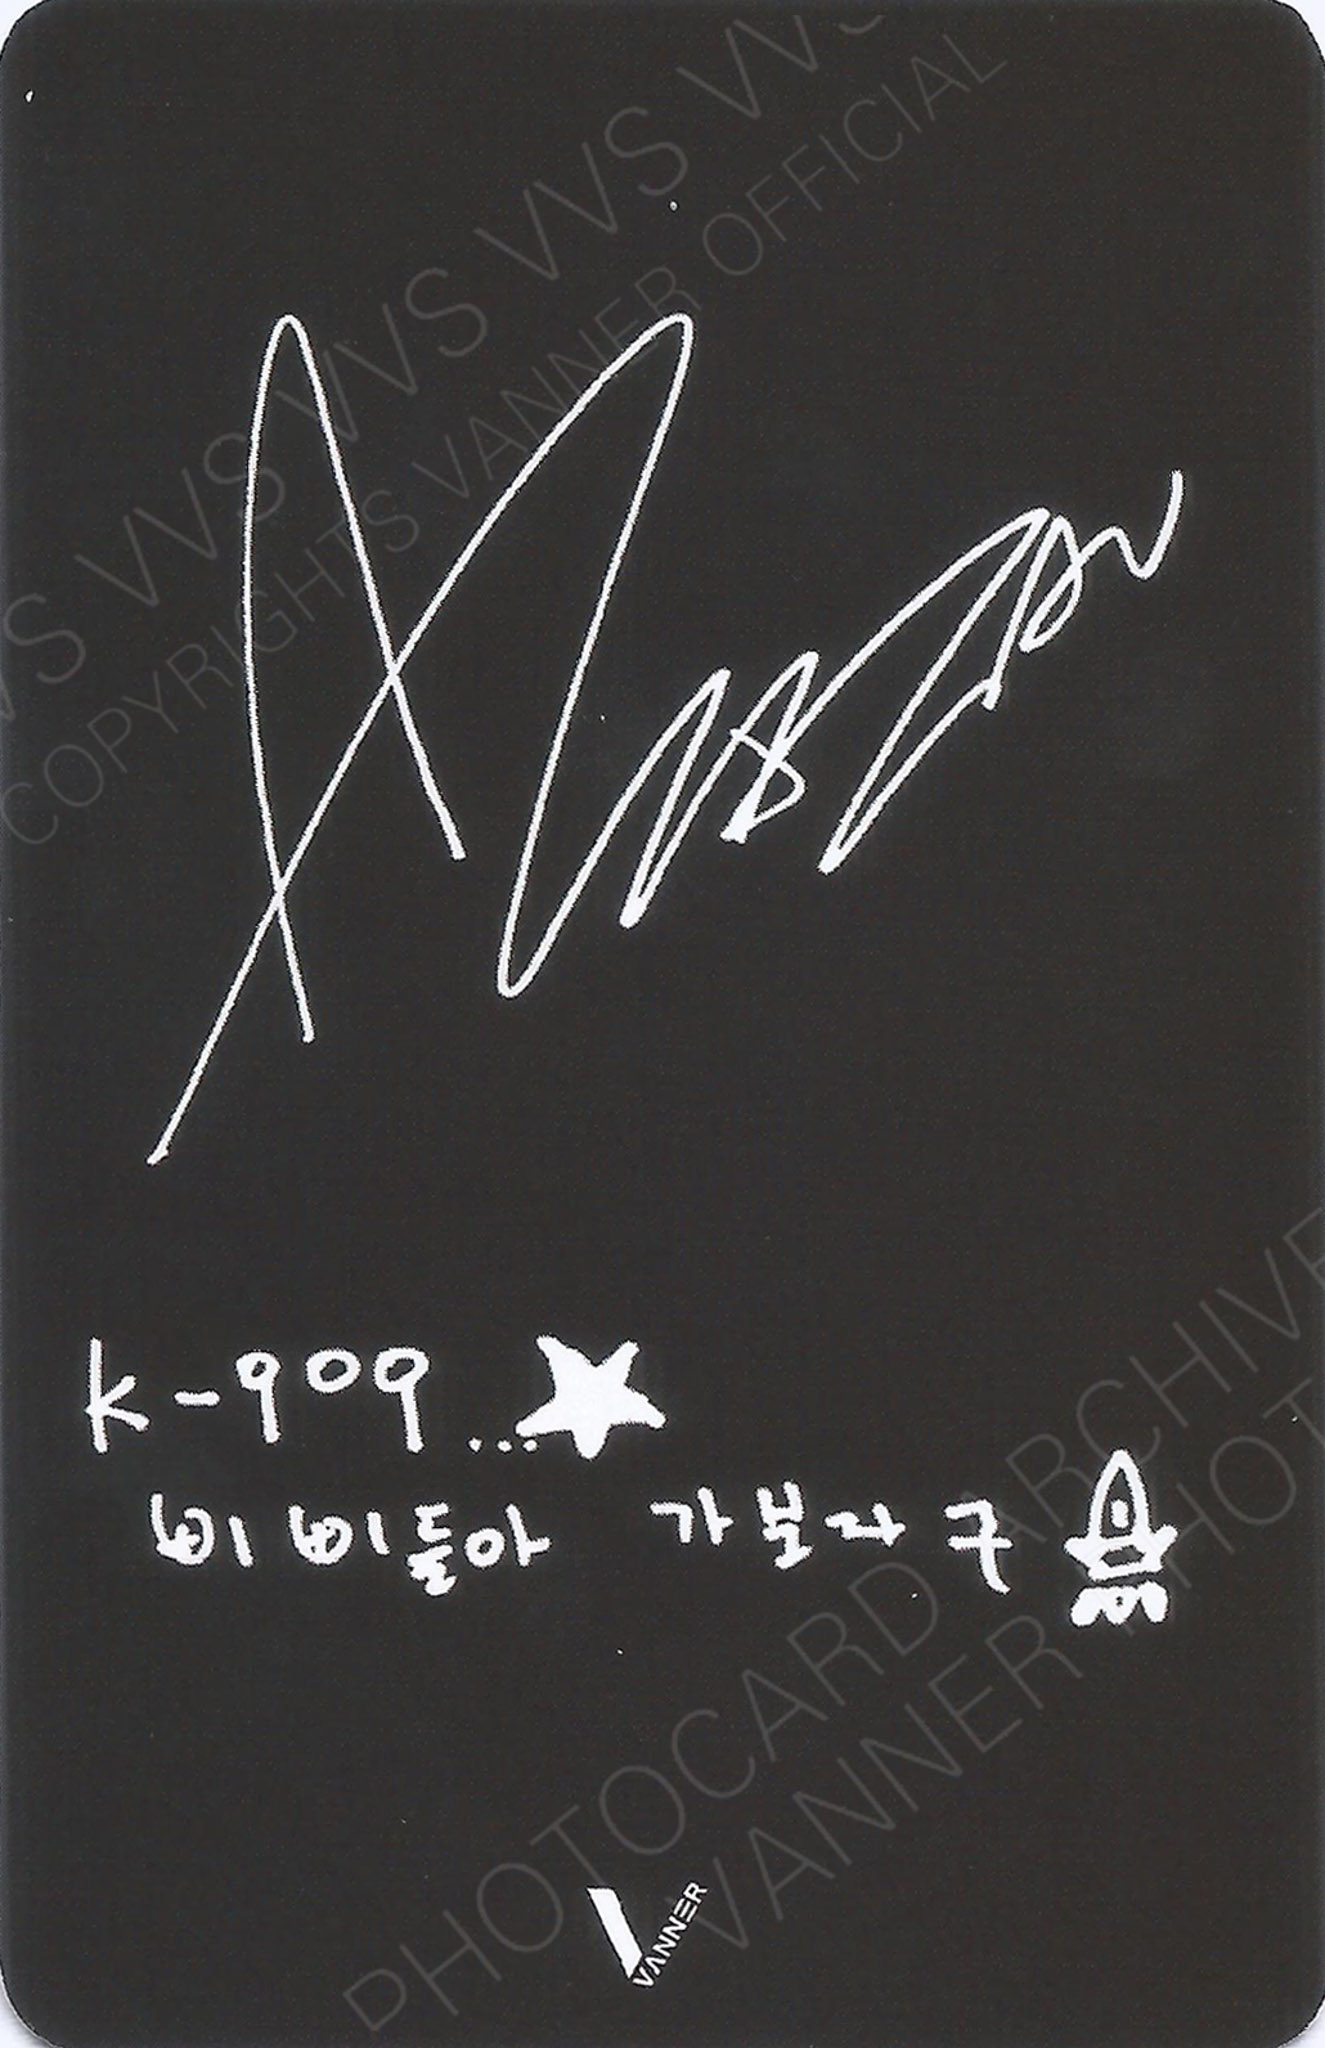 VVS VVS VVS VVS VVS
COPYRIGHTS VANNER OFFICIAL
K-909...
삐삐돌아 가보자구
PHOTOCARD ARCHIVE
VANNER PHOT
VANNER